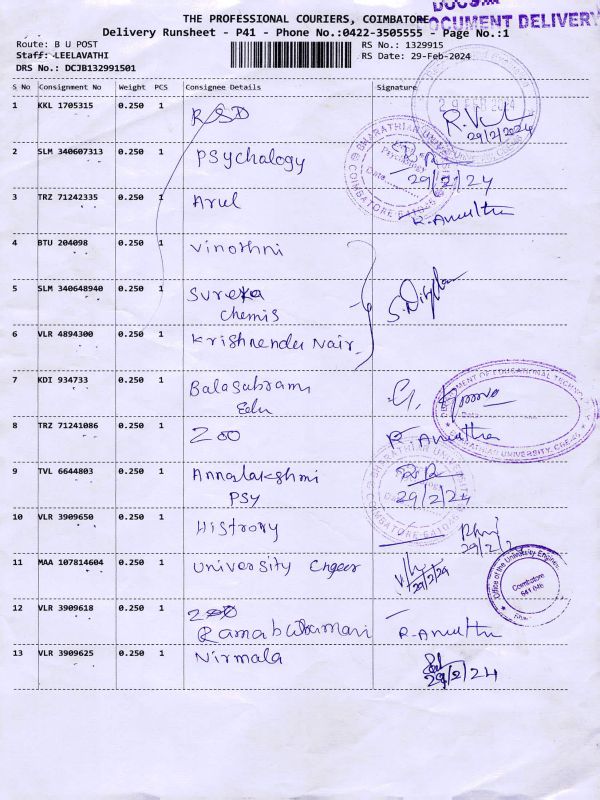 DOCUMENT DELIVERY
THE PROFESSIONAL COURIERS, COIMBATORE
Delivery Runsheet - P41 - Phone No.:0422-3505555 - Page No.:1
Route: B U POST RS No.: 1329915
Staff: LEELAVATHI RS Date: 29-Feb-2024
DRS No.: DCJB132991501
S No Consignment No Weight PCS Consignee Details Signature
1 KKL 1705315 0.250 1 RSD 29/2/2024
2 SLM 340607313 0.250 1 Psychalogy 29/2/24
3 TRZ 71242335 0.250 1 Arul R. Amutha
4 BTU 204098 0.250 1 Vinothni
5 SLM 340648940 0.250 1 Sureka
Chemis
6 VLR 4894300 0.250 1 Krishnendu Nair
7 KDI 934733 0.250 1 Balasubrami
Edu
8 TRZ 71241086 0.250 1 Zoo R. Amutha
9 TVL 6644803 0.250 1 Annalakshmi
PSY 29/2/24
10 VLR 3909650 0.250 1 Histrory
29/2/2
11 MAA 107814604 0.250 1 University Engeer 29/2/24
Office of the University Engineer
Coimbatore
641 046
12 VLR 3909618 0.250 1 Zoo
Ramabukumari R. Amutha
13 VLR 3909625 0.250 1 Nirmala
29/2/24
BHARATHIAR UNIVERSITY
Psychology
Date
COIMBATORE 641046
DEPARTMENT OF EDUCATIONAL TECHNOLOGY
Date
BHARATHIAR UNIVERSITY, CBE-46